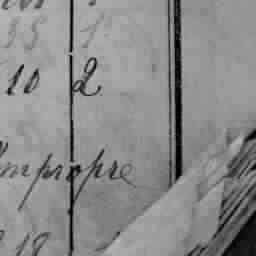 35 1
10 2
Impropre
18